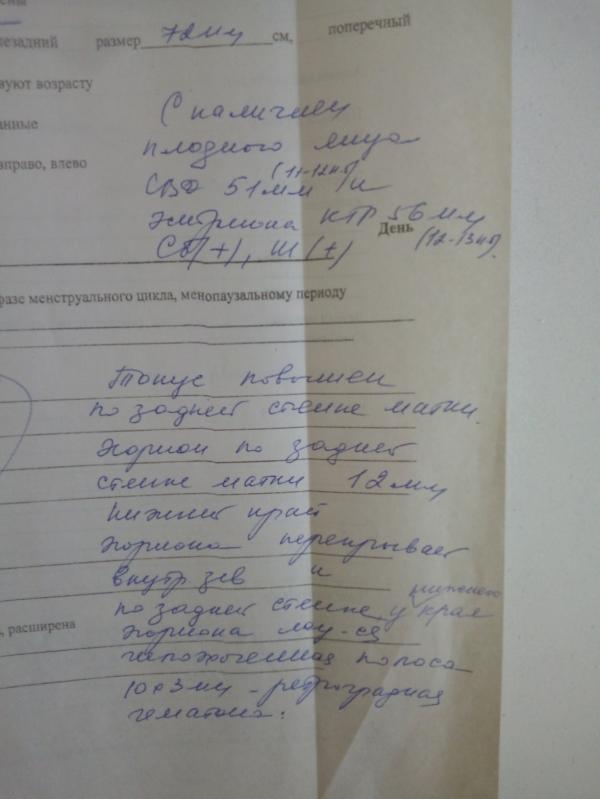 незадний размер 72мм см, поперечный
вуют возрасту
анные
С наличием
плодного яйца
вправо, влево
(11-12нб)
СВД 51мм и
эмбриона КТР 56 мм
День
(12-13нб).
СБ(+), Ш(+)
фазе менструального цикла, менопаузальному периоду
Тонус повышен
по задней стенке матки.
Хорион по задней
стенке матки 12мм
Нижний край
хориона перекрывает
внутр зев и
нижнего
по задней стенке у края
, расширена
хориона лоц-ся
гипоэхогенная полоса
10х3мм - ретроградная
гематома.